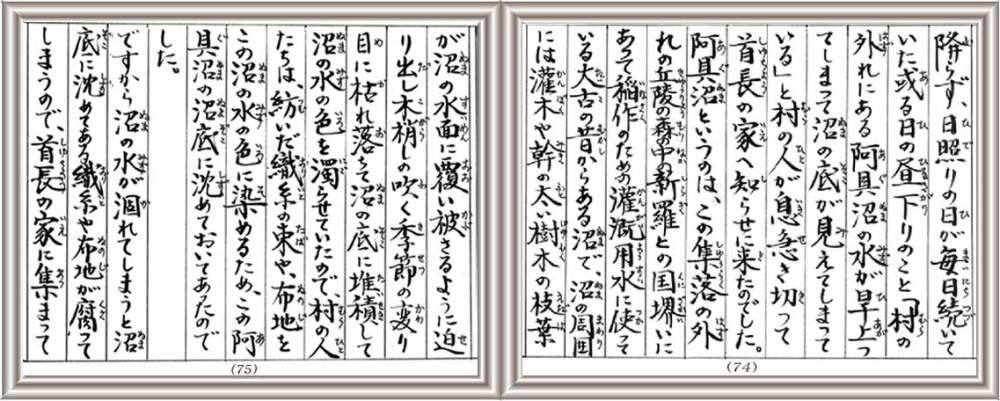 降らず、日照りの日が毎日続いて
いた或る日の昼下りのこと「村の
外れにある阿具沼の水が旱上っ
てしまって沼の底が見えてしまって
いる」と村の人が息急き切って
首長の家へ知らせに来たのでした。
阿具沼というのは、この集落の外
れの丘陵の森の中の新羅との国堺いに
あって稲作のための灌漑用水に使って
いる大古の昔からある沼で、沼の周囲
には灌木や幹の太い樹木の枝葉
(74)
が沼の水面に覆い被さるように迫
り出し木梢しの吹く季節の変り
目に枯れ落ちて沼の底に堆積して
沼の水の色を濁らせていたので、村の人
たちは、紡いだ織糸の束や、布地を
この沼の水の色に染めるため、この阿
具沼の沼底に沈めておいてあったので
した。
ですから沼の水が涸れてしまうと沼
底に沈めてある織糸や布地が腐って
しまうので、首長の家に集まって
(75)